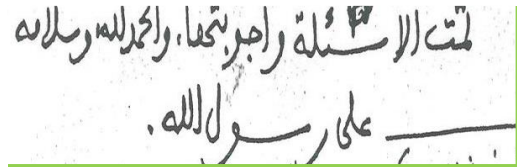 تمت الاسئلة واجوبتها، والحمد لله وسلامه
على رسول الله.